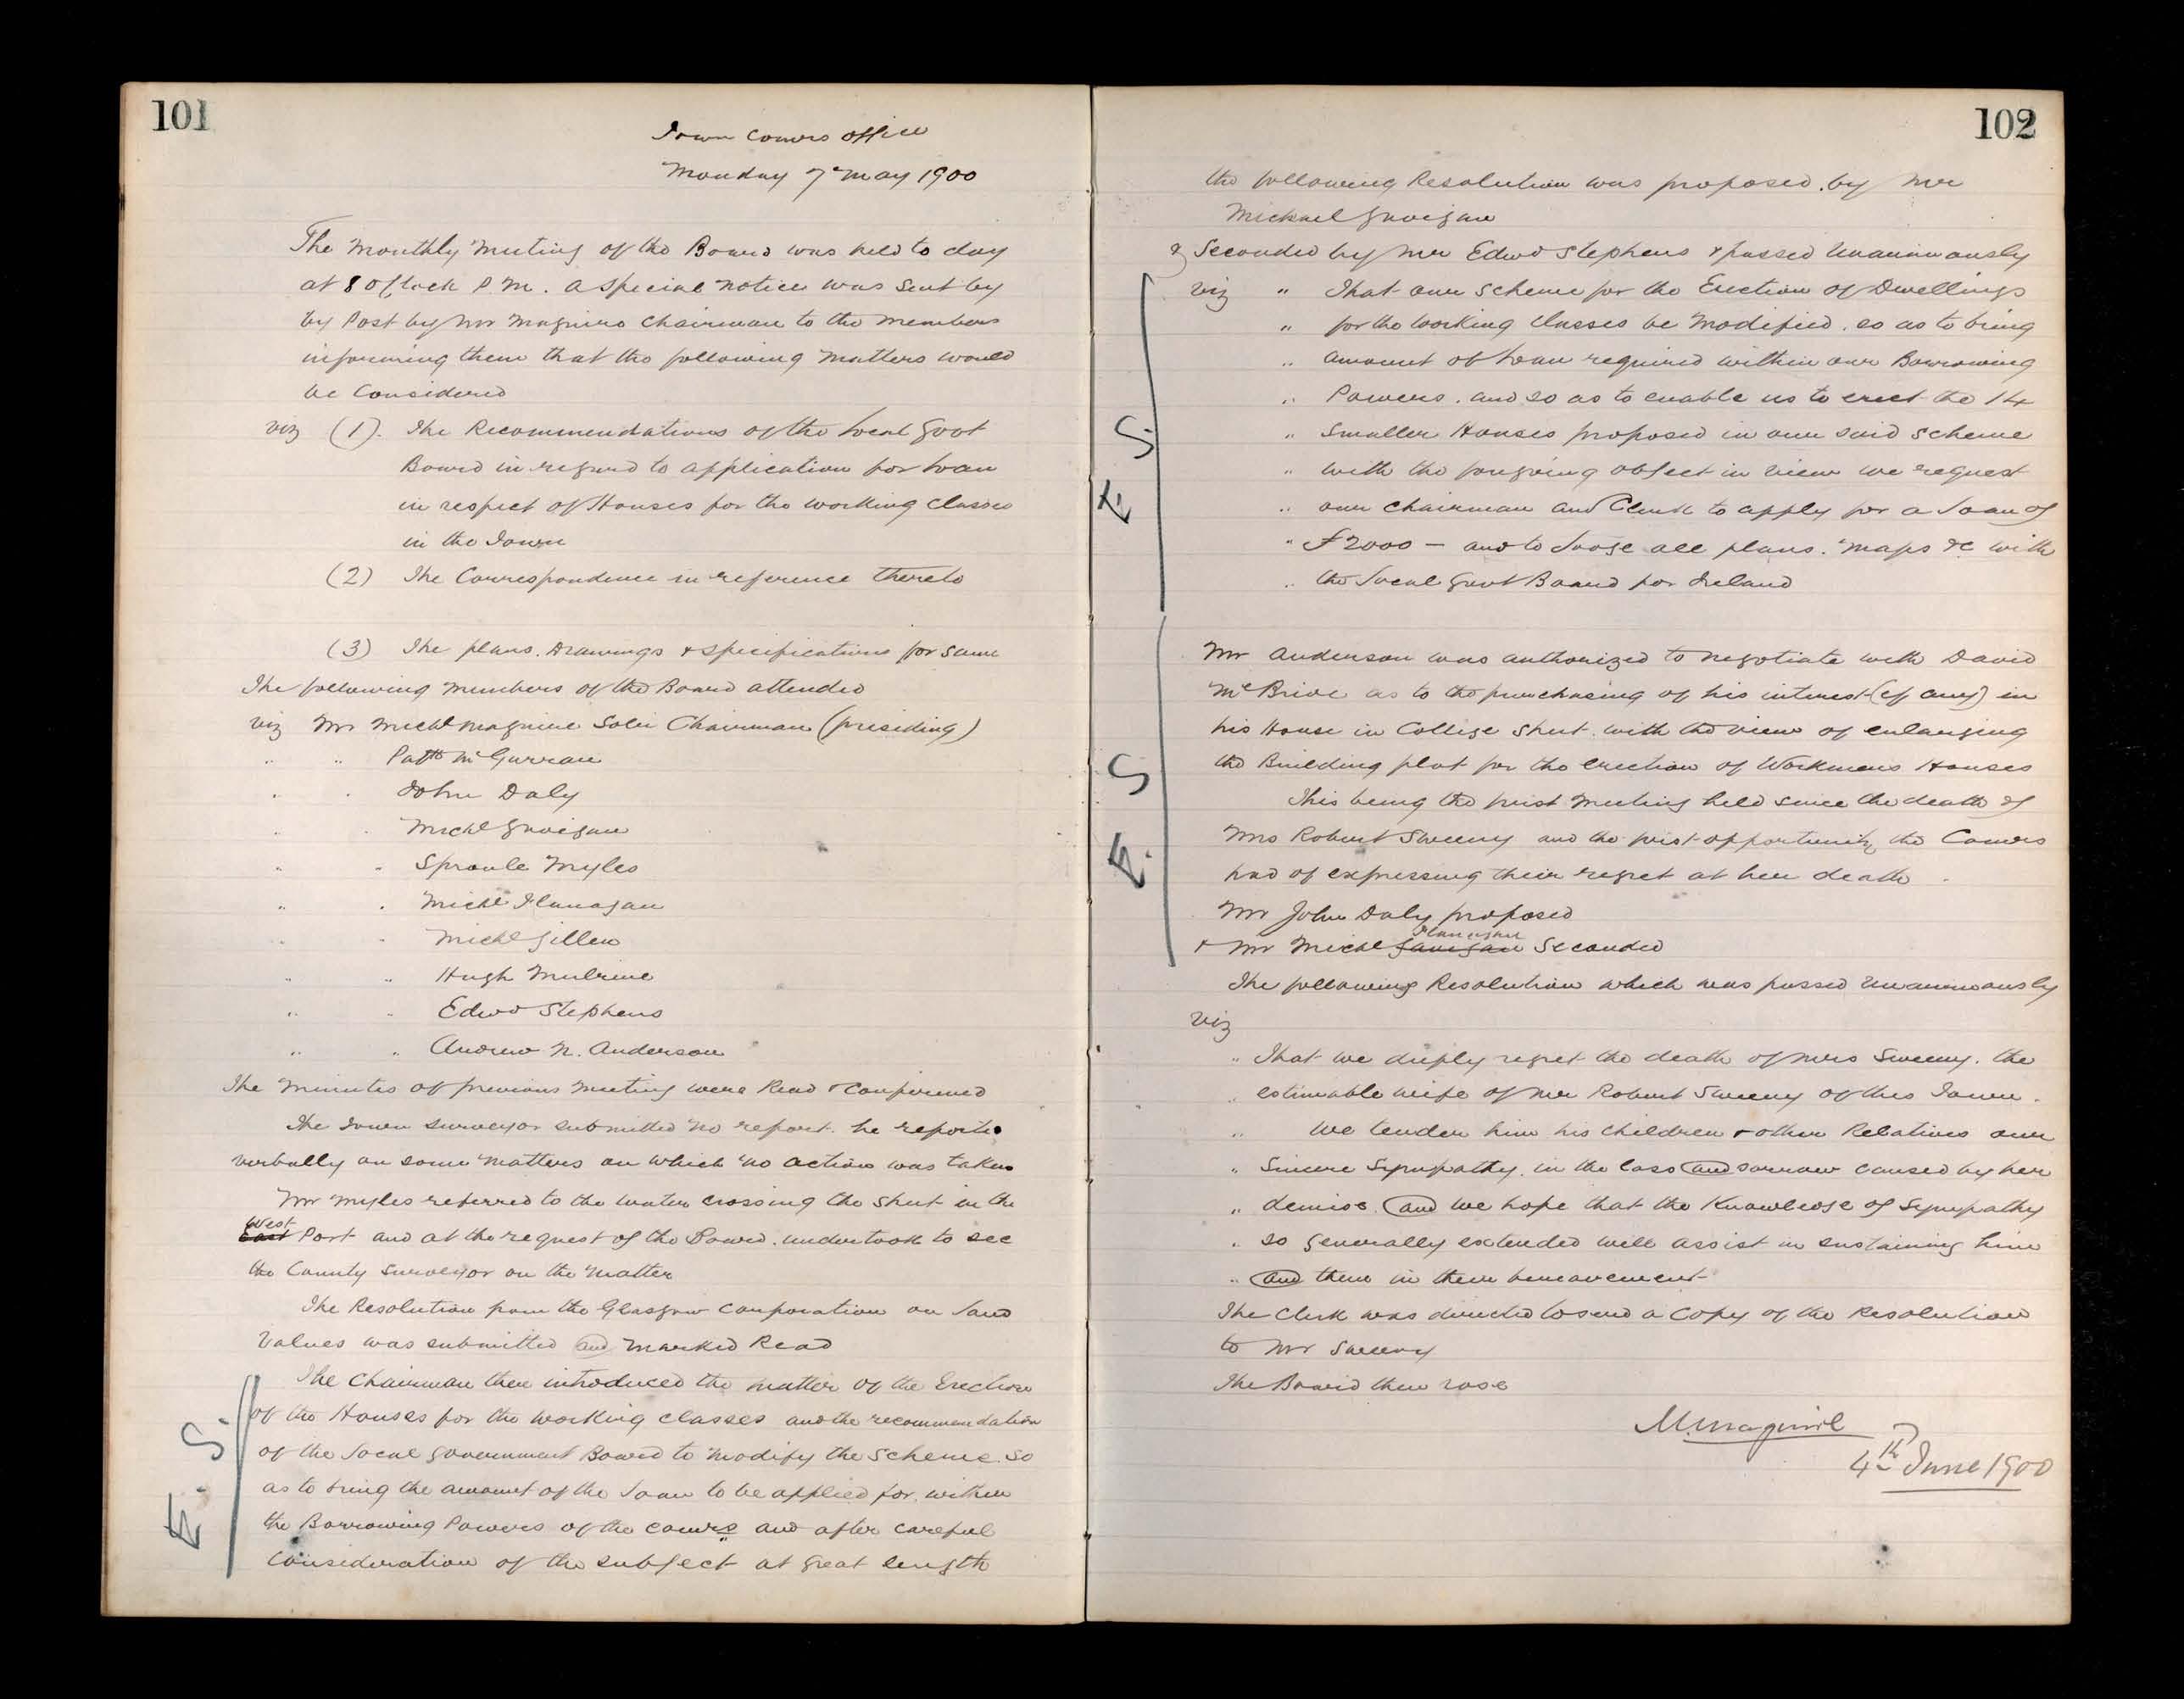 101
Town Comrs Office
Monday 7 May 1900
The Monthly Meeting of the Board was held to day
at 8 O,Clock P.M. a special notice was sent by
by Post by Mr Maguire Chairman to the Members
informing them that the following matters would
be Considered
viz (1). The Recommendations of the Local Govt
Board in regard to application for Loan
in respect of Houses for the working Classes
in the Town
(2) The Correspondence in reference thereto
(3) The plans. Drawings & specifications for same
The following Members of the Board attended
viz Mr Michl Maguire Solr Chairman (presiding)
" " Patk McGurran
" " John Daly
" " Michl Gavigan
" " Sproule Myles
" " Michl Flanagan
" " Michl Gillen
" " Hugh Mulrine
" " Edwd Stephens
" " Andrew N. Anderson
The Minutes of previous Meeting were Read & Confirmed
The Town Surveyor submitted no report. he reported
verbally on some matters on which no action was taken
Mr Myles referred to the water crossing the Street in the
West
East Port and at the request of the Board. undertook to see
the County Surveyor on the Matter
The Resolution from the Glasgow Corporation on Land
Values was submitted and Marked Read
The Chairman then introduced the matter of the Erection
of the Houses for the working classes and the recommendation
of the Local Government Board to Modify the Scheme. So
as to bring the amount of the Loan to be applied for. within
the Borrowing Powers of the Comrs and after careful
Consideration of the subject at great length
102
the following Resolution was proposed. by Mr
Michael Gavigan
& Seconded by Mr Edwd Stephens & passed Unanimously
viz " That our Scheme for the Erection of Dwellings
" for the working Classes be Modified. so as to bring
" amount of Loan required within our Borrowing
" Powers. and so as to enable us to erect the 14
" Smaller Houses proposed in our said Scheme
" with the foregoing object in view we request
" our Chairman and Clerk to apply for a Loan of
" £2000 — and to Lodge all plans. Maps &c with
" the Local Govt Board for Ireland
Mr Anderson was authorized to negotiate with David
McBride as to the purchasing of his interest (if any) in
his House in College Street. with the view of enlarging
the Building plot for the erection of Workmens Houses
This being the first Meeting held since the death of
Mrs Robert Sweeny and the first opportunity the Comrs
had of expressing their regret at her death.
Mr John Daly proposed
Flanagan
& Mr Michl Gavigan Seconded
The following Resolution which was passed Unanimously
viz
" That we deeply regret the death of Mrs Sweeny. the
" estimable wife of Mr Robert Sweeny of this Town.
" We tender him his Children & other Relatives our
" Sincere Sympathy. in the loss and sorrow caused by her
" demise. and we hope that the Knowledge of Sympathy
" so generally extended will assist in sustaining him
" and them in their bereavement
The Clerk was directed to send a Copy of the Resolution
to Mr Sweeny
The Board then rose
M. Maguire
4th June 1900
E. S.
E. S.
E. S.